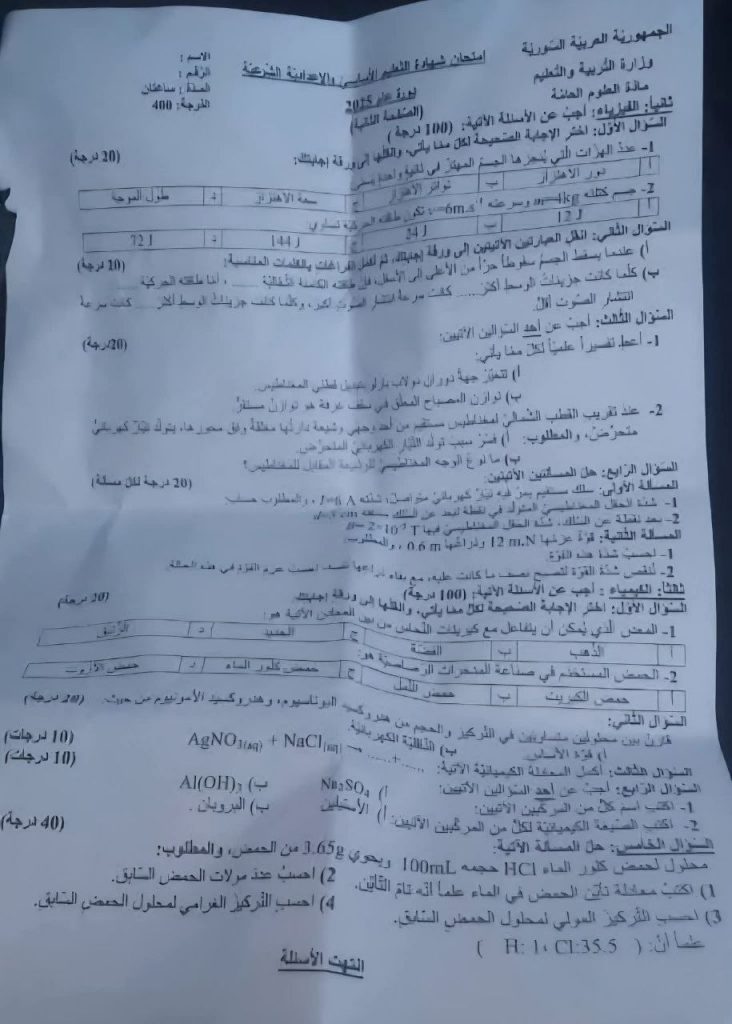 الجمهوريّة العربيّة السّورية
وزارة التّربية والتّعليم
مادّة العلوم العامّة
امتحان شهادة التّعليم الأساسيّ والإعداديّة الشّرعيّة
دورة عام 2025
(الصّفحة الثّانية)
الاسم :
الرّقم :
المدّة : ساعتان
الدّرجة: 400
ثانياً: الفيزياء: أجبْ عن الأسئلة الآتية: (100 درجة)
السّؤال الأوّل: اختر الإجابة الصّحيحة لكلّ ممّا يأتي، وانقلها إلى ورقة إجابتك: (20 درجة)
1- عدد الهزّات الّتي ينجزها الجسم المهتزّ في ثانية واحدة يسمّى
أ دور الاهتزاز ب تواتر الاهتزاز ج سعة الاهتزاز د طول الموجة
2- جسم كتلته m=4kg وسرعته v=6m.s⁻¹ تكون طاقته الحركيّة تساوي:
أ 12 J ب 24 J ج 144 J د 72 J
السّؤال الثّاني: انقل العبارتين الآتيتين إلى ورقة إجابتك، ثمّ أكمل الفراغات بالكلمات المناسبة: (20 درجة)
أ) عندما يسقط الجسم سقوطاً حرّاً من الأعلى إلى الأسفل، فإنّ طاقته الكامنة الثّقاليّة ...... ، أمّا طاقته الحركيّة ......
ب) كلّما كانت جزيئات الوسط أكثر ...... كانت سرعة انتشار الصّوت أكبر، وكلّما كانت جزيئات الوسط أكثر ...... كانت سرعة
انتشار الصّوت أقلّ.
السّؤال الثّالث: أجبْ عن أحد السّؤالين الآتيين: (20درجة)
1- أعطِ تفسيراً علميّاً لكلّ ممّا يأتي:
أ) تتغيّر جهة دوران دولاب بارلو بتبديل قطبي المغناطيس.
ب) توازن المصباح المعلّق في سقف غرفة هو توازنٌ مستقرٌّ
2- عند تقريب القطب الشّماليّ لمغناطيس مستقيم من أحد وجهي وشيعة دارتها مغلقة وفق محورها، يتولّد تيّار كهربائيّ
متحرّضٌ، والمطلوب: أ) فسّر سبب تولّد التّيّار الكهربائيّ المتحرّض.
ب) ما نوع الوجه المغناطيسيّ للوشيعة المقابل للمغناطيس؟
السّؤال الرّابع: حلّ المسألتين الآتيتين: (20 درجة لكلّ مسألة)
المسألة الأولى: سلك مستقيم يمرّ فيه تيّار كهربائيّ متواصل شدّته I=8 A، والمطلوب حساب:
1- شدّة الحقل المغناطيسيّ المتولّد في نقطة تبعد عن السّلك مسافة cm
2- بعد نقطة عن السّلك، شدّة الحقل المغناطيسيّ فيها B= 2×10⁻⁵ T
المسألة الثّانية: قوّة عزمها 12 m.N وذراعها 0.6 m ، والمطلوب:
1- احسبْ شدّة هذه القوّة.
2- تُنقص شدّة القوّة لتصبح نصف ما كانت عليه، مع بقاء ذراعها نفسه، احسب عزم القوّة في هذه الحالة.
ثالثاً: الكيمياء : أجبْ عن الأسئلة الآتية: (100 درجة)
السّؤال الأوّل: اختر الإجابة الصّحيحة لكلّ ممّا يأتي، وانقلها إلى ورقة إجابتك (20 درجة)
1- المعدن الّذي يُمكن أن يتفاعل مع كبريتات النّحاس من بين المعادن الآتية هو:
أ الذّهب ب الفضّة ج الحديد د الزّئبق
2- الحمض المستخدم في صناعة المدّخرات الرّصاصيّة هو:
أ حمض الكبريت ب حمض النّمل ج حمض كلور الماء د حمض الآزوت
السّؤال الثّاني: (20 درجة)
قارنْ بين محلولين متساويين في التّركيز والحجم من هدروكسيد البوتاسيوم، وهدروكسيد الأمونيوم من حيث:
أ) قوّة الأساس. ب) النّاقليّة الكهربائيّة.
السّؤال الثّالث: أكمل المعادلة الكيميائيّة الآتية: AgNO₃(aq) + NaCl(aq) → ......+...... (10 درجات)
السّؤال الرّابع: أجبْ عن أحد السّؤالين الآتيين: (10 درجات)
1- اكتب اسم كلّ من المركّبين الآتيين: أ) Na₂SO₄ ب) Al(OH)₃
2- اكتب الصّيغة الكيميائيّة لكلّ من المركّبين الآتيين: أ) الأستيلين ب) البروبان.
السّؤال الخامس: حلّ المسألة الآتية: (40 درجة)
محلول لحمض كلور الماء HCl حجمه 100mL ويحوي 3.65g من الحمض، والمطلوب:
1) اكتبْ معادلة تأيّن الحمض في الماء علماً أنّه تامّ التّأيّن. 2) احسبْ عدد مولات الحمض السّابق.
3) احسب التّركيز المولي لمحلول الحمض السّابق. 4) احسب التّركيز الغرامي لمحلول الحمض السّابق.
علماً أنّ: ( H: 1، Cl:35.5 )
انتهت الأسئلة